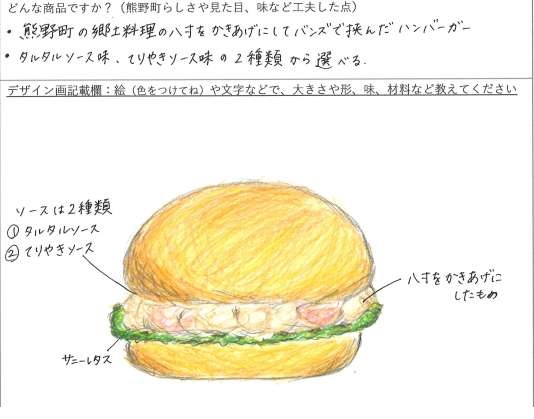 どんな商品ですか？（熊野町らしさや見た目、味など工夫した点）
・熊野町の郷土料理の八寸をかきあげにしてバンズで挟んだハンバーガー
・タルタルソース味、てりやきソース味の2種類から選べる.
デザイン画記載欄：絵（色をつけてね）や文字などで、大きさや形、味、材料など教えてください
ソースは2種類
①タルタルソース
②てりやきソース
八寸をかきあげに
したもの
サニーレタス